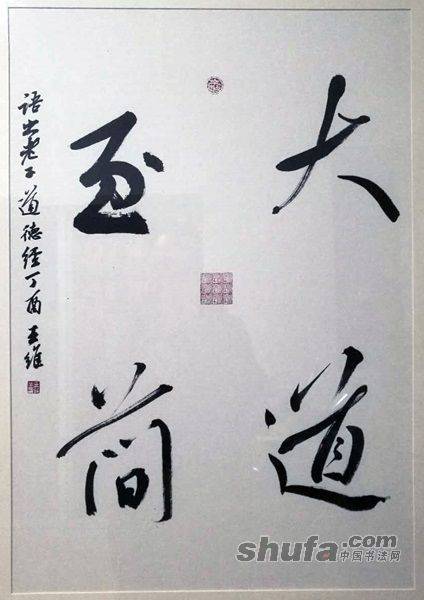 大道
至简
语出老子道德经丁酉王维
shufa.com
中国书法网